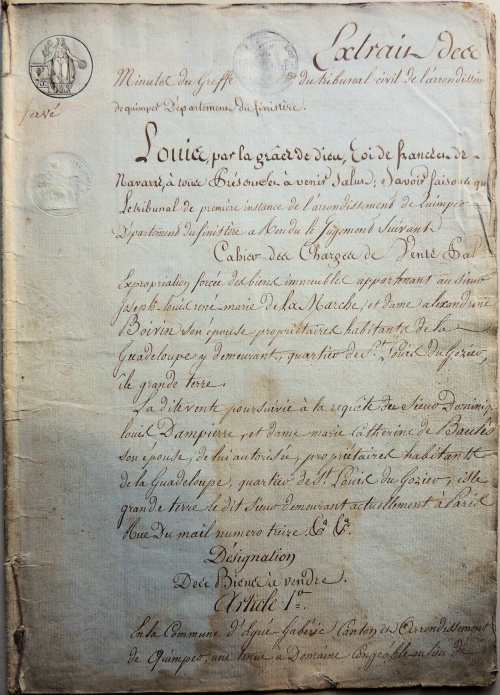 Extrait des
Minutes du Greffe du tribunal civil de l'arrondissem
de quimper Département du finistère.
Louis, par la grâce de dieu, Roi de france et de
Navarre, à tous Présents et à venir Salut; Savoir faisons que
Le tribunal de première instance de l'arrondissement de Quimper
Département du finistère a Rendu le Jugement Suivant
Cahier des Charges de Vente Par
Expropriation forcée des biens immeubles appartenant au Sieur
Joseph-louis rené-marie De la Marche, et dame alexandrine
Boivin son épouse propriétaires habitants de la
Guadeloupe y demeurant, quartier de St Louis du Gozier,
île grande terre.
La dite vente poursuivie à la requête du Sieur Dominiq
louis Dampierre, et dame marie Catherine de
son épouse, de lui autorisée, propriétaires habitants
de la Guadeloupe, quartier de St Louis du Gozier, isle
grande terre le dit Sieur demeurant actuellement à Paris
Rue Du mail numero treize. &a &a.
Désignation
Des Biens à vendre.
Article 1er
En la Commune d'Ergué-Gabéric Canton et Arrondissement
de Quimper, une tenue à Domaine Congéable au lieu de